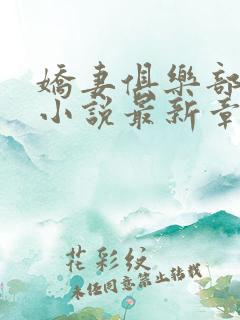 嬌妻俱樂部
小說最新章
花彩紋
未经同意禁止转载